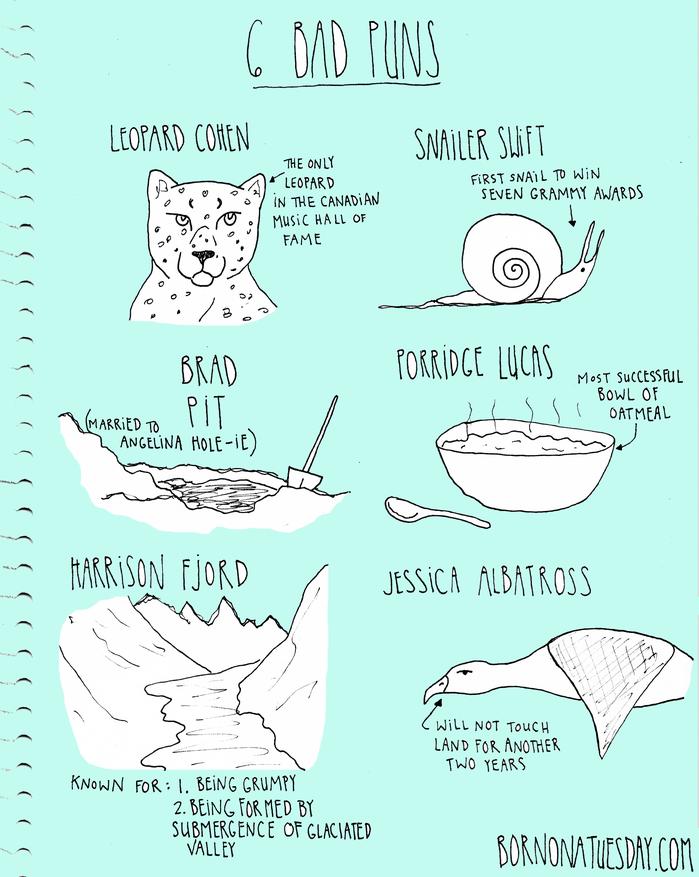 6 BAD PUNS
LEOPARD COHEN
THE ONLY
LEOPARD
IN THE CANADIAN
MUSIC HALL OF
FAME
SNAILER SWIFT
FIRST SNAIL TO WIN
SEVEN GRAMMY AWARDS
BRAD
PIT
(MARRIED TO
ANGELINA HOLE-IE)
PORRIDGE LUCAS
MOST SUCCESSFUL
BOWL OF
OATMEAL
HARRISON FJORD
KNOWN FOR: 1. BEING GRUMPY
2. BEING FORMED BY
SUBMERGENCE OF GLACIATED
VALLEY
JESSICA ALBATROSS
WILL NOT TOUCH
LAND FOR ANOTHER
TWO YEARS
BORNONATUESDAY.COM